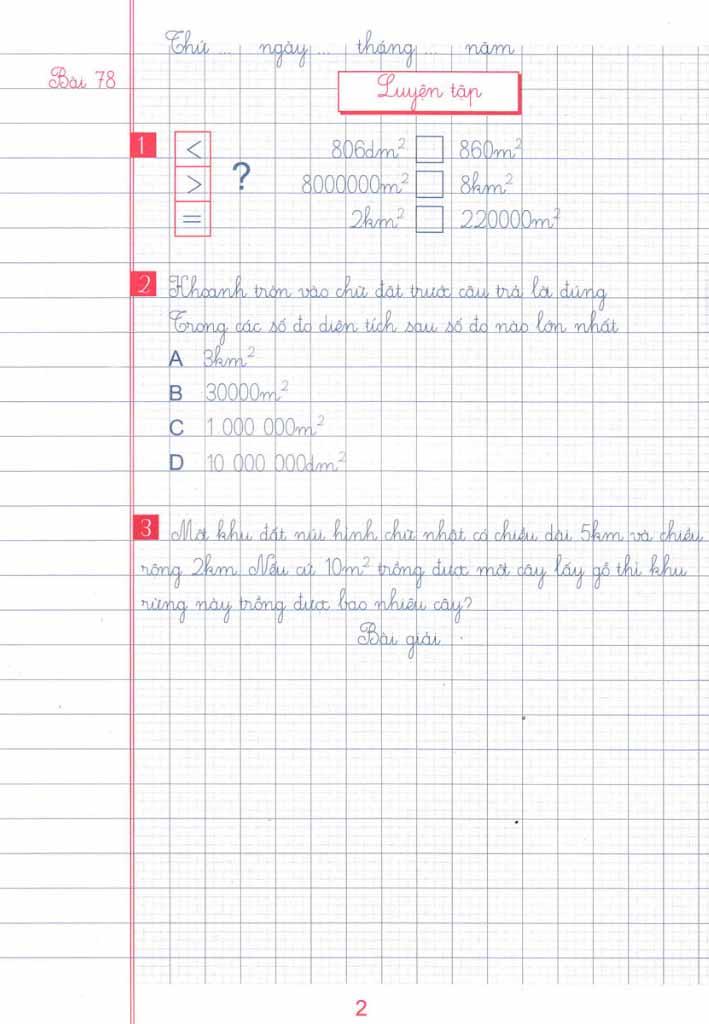 Thứ ... ngày ... tháng ... năm
Bài 78
Luyện tập
1 < > = ?
806dm² □ 860m²
8000000m² □ 8km²
2km² □ 220000m²
2 Khoanh tròn vào chữ đặt trước câu trả lời đúng
Trong các số đo diện tích sau số đo nào lớn nhất
A 3km²
B 30000m²
C 1 000 000m²
D 10 000 000dm²
3 Một khu đất núi hình chữ nhật có chiều dài 5km và chiều
rộng 2km Nếu cứ 10m² trồng được một cây lấy gỗ thì khu
rừng này trồng được bao nhiêu cây?
Bài giải
2